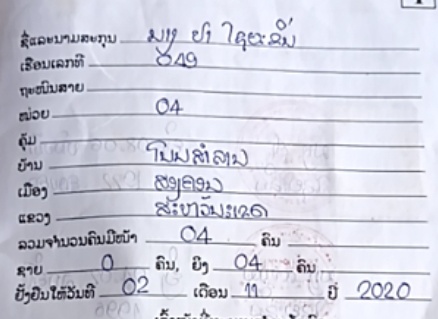 ຊື່ແລະນາມສະກຸນ ນາງ ຢາ ໄຊຍະຂັນ
ເຮືອນເລກທີ 049
ຖະໜົນສາຍ
ໜ່ວຍ 04
ຄຸ້ມ
ບ້ານ ໂນນສຳລານ
ເມືອງ ສອງຄອນ
ແຂວງ ສະຫວັນນະເຂດ
ລວມຈຳນວນຄົນມີໜ້າ 04 ຄົນ
ຊາຍ 0 ຄົນ, ຍິງ 04 ຄົນ
ຢັ້ງຢືນໃຫ້ວັນທີ 02 ເດືອນ 11 ປີ 2020